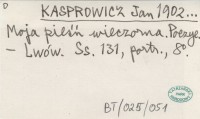 D
KASPROWICZ Jan 1902...
Moja pieśń wieczorna. Poezye.
- Lwów. Ss. 131, portr., 8°.
BT/025/051